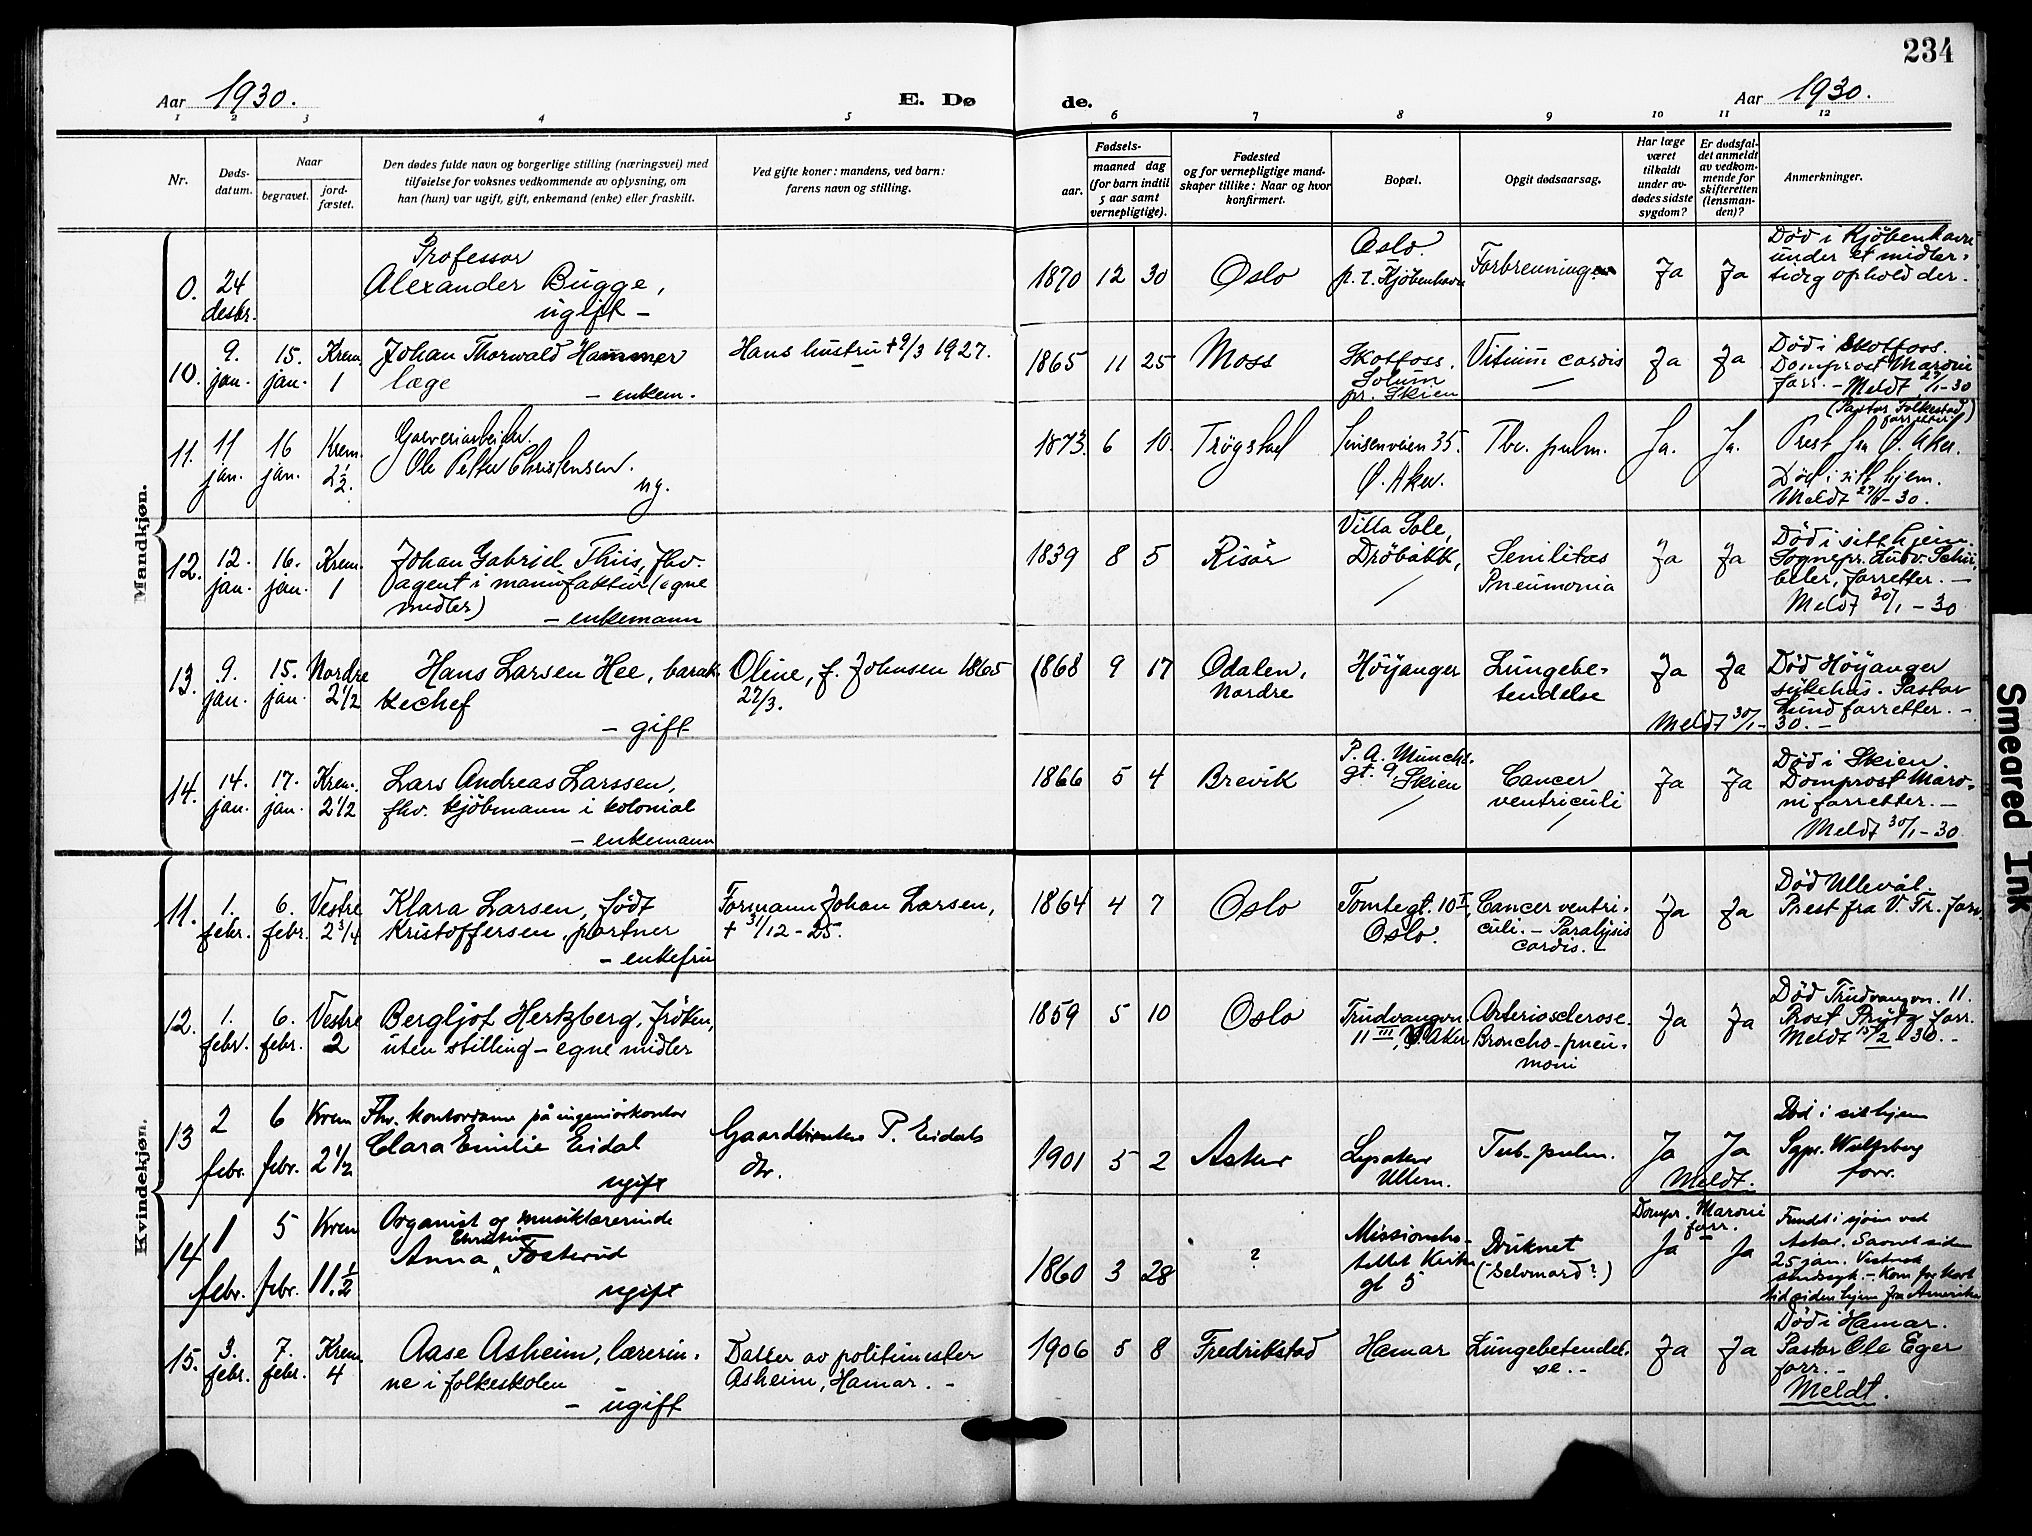 234
Aar 1930.
E. Dø
de.
Aar 1930.
1 2 3 4 5 6 7 8 9 10 11 12
Nr.
Døds-
datum.
Naar
begravet.
jord-
fæstet.
Den dødes fulde navn og borgerlige stilling (næringsvei) med
tilføielse for voksnes vedkommende av oplysning, om
han (hun) var ugift, gift, enkemand (enke) eller fraskilt.
Ved gifte koner: mandens, ved barn:
farens navn og stilling.
Fødsels-
aar.
maaned dag
(for barn indtil
5 aar samt
vernepligtige).
Fødested
og for vernepligtige mand-
skaper tillike: Naar og hvor
konfirmert.
Bopæl.
Opgit dødsaarsag.
Har læge
været
tilkaldt
under av-
dødes sidste
sygdom?
Er dødsfal-
det anmeldt
av vedkom-
mende for
skifteretten
(lensman-
den)?
Anmerkninger.
Mandkjøn.
0.
24
desbr.
Professor
Alexander Bugge,
ugift –
1870 12 30
Oslo
Oslo.
p. t. Kjøbenhavn
Forbrenning
Ja
Ja
Død i Kjøbenhavn
under et midler-
tidig ophold der.
10.
9.
jan.
15.
jan.
Krem.
1
Johan Thorwald Hammer
læge
– enkem.
Hans hustru + 9/3 1927.
1865 11 25
Moss
Skotfoss.
Solum
pr. Skien
Vitium cordis
Ja
Ja
Død i Skotfoss.
Domprost Maroni
forr. – Meldt 27/1-30
11.
11
jan.
16
jan.
Krem.
2 1/2.
Garveriarbeider.
Ole Petter Christensen.
ug.
1873. 6 10.
Trøgstad
Sinsenveien 35.
Ø. Aker.
Tbc. pulm.
Ja.
Ja.
(Pastor Folkestad
forretter)
Prest fra Ø. Aker.
Død i sitt hjem.
Meldt 27/1-30.
12.
12.
jan.
16.
jan.
Krem.
1
Johan Gabriel Thiis, fhv.
agent i manufaktur (egne
midler)
– enkemann
1839 8 5
Risør
Villa Sole,
Drøbakk,
Senilitas
Pneumonia
Ja
Ja
Død i sitt hjem.
Sognepr. Ludv. Schü-
beler, forretter. –
Meldt 30/1-30
13.
9.
jan.
15.
jan.
Nordre
2 1/2
Hans Larsen Hee, barak-
kechef
– gift
Oline, f. Johnsen 1865
27/3.
1868 9 17
Odalen,
Nordre
Høyanger
Lungebe-
tendelse
Ja
Ja
Død Høyanger
sykehus. Pastor
Lund forretter. –
Meldt 30/1-30. –
14.
14.
jan.
17.
jan.
Krem.
2 1/2
Lars Andreas Larssen,
fhv. kjøbmann i kolonial
– enkemann
1866 5 4
Brevik
P. A. Munchs
gt. 9 Skien
Cancer
ventriculi
Ja
Ja
Død i Skien.
Domprost Maro-
ni forretter. –
Meldt 30/1-30
Kvindekjøn.
11.
1.
febr.
6.
febr.
Vestre
2 3/4
Klara Larsen, født
Kristoffersen, portner
– enkefru
Formann Johan Larsen,
+ 31/12 – 25.
1864 4 7
Oslo
Tomtegt. 10 I
Oslo.
Cancer ventri-
culi. – Paralysis
cordis. –
Ja
Ja
Død Ullevål.
Prest fra V. Fr. forr.
12.
1.
febr.
6.
febr.
Vestre
2
Bergljot Hertzberg, frøken,
uten stilling – egne midler
1859 5 10
Oslo
Trudvangvn.
11 III, V. Aker
Arteriosclerose.
Broncho-pneu-
moni
Ja
Ja
Død Trudvangvn. 11.
Prost Prytz forr.
Meldt 15/2-30. –
13
2
febr.
6
febr.
Krem
2 1/2
Fhv. kontordame på ingeniørkontor
Clara Emilie Eidal
ugift
Gaardbruker P. Eidals
dtr.
1901 5 2
Asker
Lysaker
Ullern.
Tub. pulm.
Ja
Ja
Meldt.
Død i sit hjem
Sgpr. Wulfsberg
forr.
14
1
febr.
5
febr.
Krem
11. 1/2
Organist og musiklærerinde
Christine
Anna Fosterud
ugift
1860 3 28
?
Missionsho-
tellet Kirke
gt 5
Druknet
(Selvmord?)
Dompr. Maroni
forr.
Ja
Ja
Fundet i sjøen ved
Asker. Savnet siden
25 jan.
sindsyk. – Kom for kort
tid siden hjem fra Amerika
15.
3.
febr.
7.
febr.
Krem.
4
Aase Asheim, lærerin-
ne i folkeskolen
– ugift
Datter av politimester
Asheim, Hamar. –
1906 5 8
Fredrikstad
Hamar
Lungebetendel-
se. –
Ja
Ja
Død i Hamar.
Pastor Ole Eger
forr. –
Meldt.
Smeared Ink